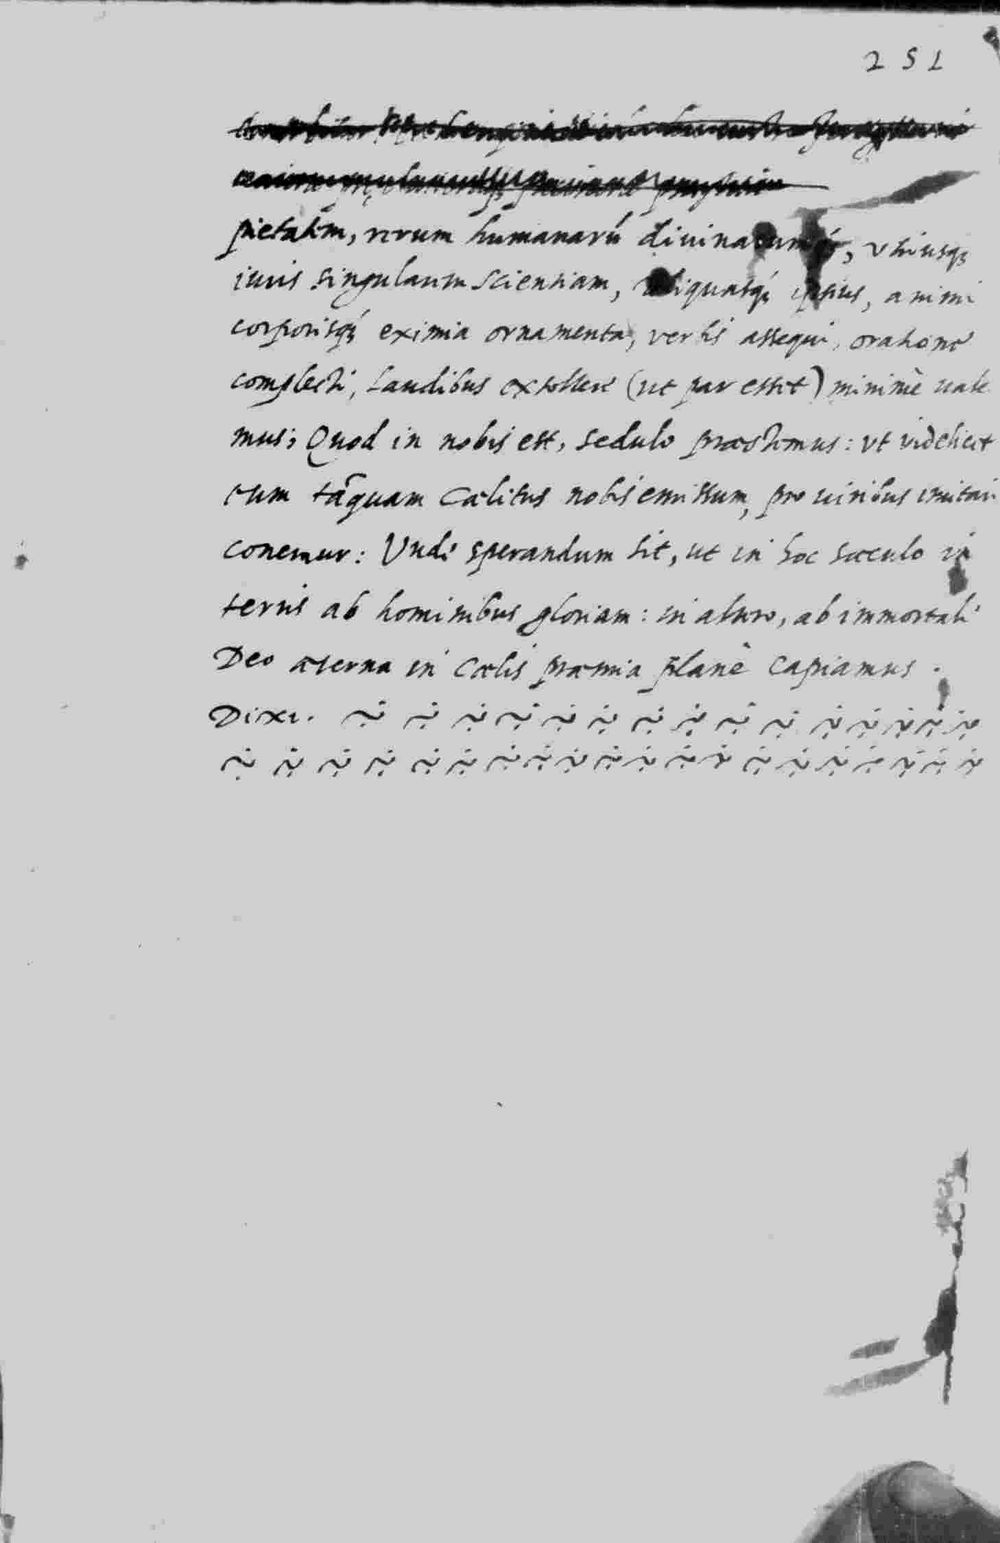 251
pietatem, rerum humanarũ divinarumq́, utriusq;
iuris singularem scientiam, reliquasq́; ipsius, animi
corporisq́; eximia ornamenta, verbis assequi, oratione
complecti, Laudibus extollere (ut par esset) minimè uale
mus; Quod in nobis est, sedulo præstemus: ut videlicet
eum tãquam Cælitus nobis emissum, pro uiribus imitari
conemur: Unde sperandum sit, ut in hoc sæculo in
terris ab hominibus gloriam: in altero, ab immortali
Deo æterna in Cælis præmia planè capiamus.
Dixi.